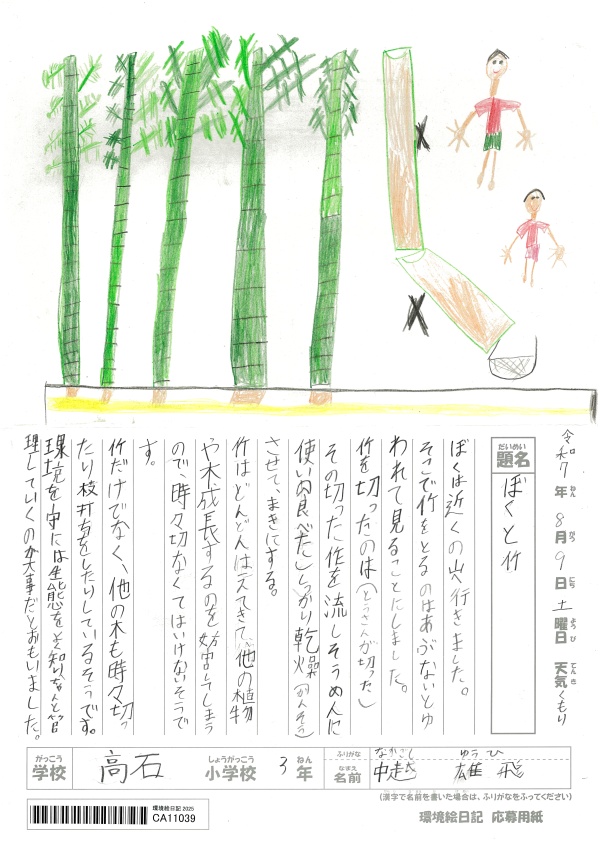 令和7年8月9日土曜日 天気くもり
ねん がつ にち よう び てんき
だいめい
題名 ぼくと竹
ぼくは近くの山へ行きました。
そこで竹をとるのはあぶないとゆ
われて見ることにしました。
竹を切ったのは(とうさんが切った)
その切った作を流しそうめんに
使い食べた。しっかり乾燥(かんそう)
させて、まきにする。
竹はどんどんはえてきて、他の植物
や木成長するのを妨害してしまう
ので、時々切なくてはいけないそうで
す。
竹だけでなく、他の木も時々切っ
たり枝打ちをしたりしているそうです。
環境を守には生態をよく知り、ちゃんと管
理していくのが大事だとおもいました。
がっこう しょうがっこう ねん ふりがな なかごし ゆうひ
学校 高石 小学校 3年 なまえ 名前 中越 雄飛
(漢字で名前を書いた場合は、ふりがなをふってください)
環境絵日記 2025
CA11039
環境絵日記 応募用紙